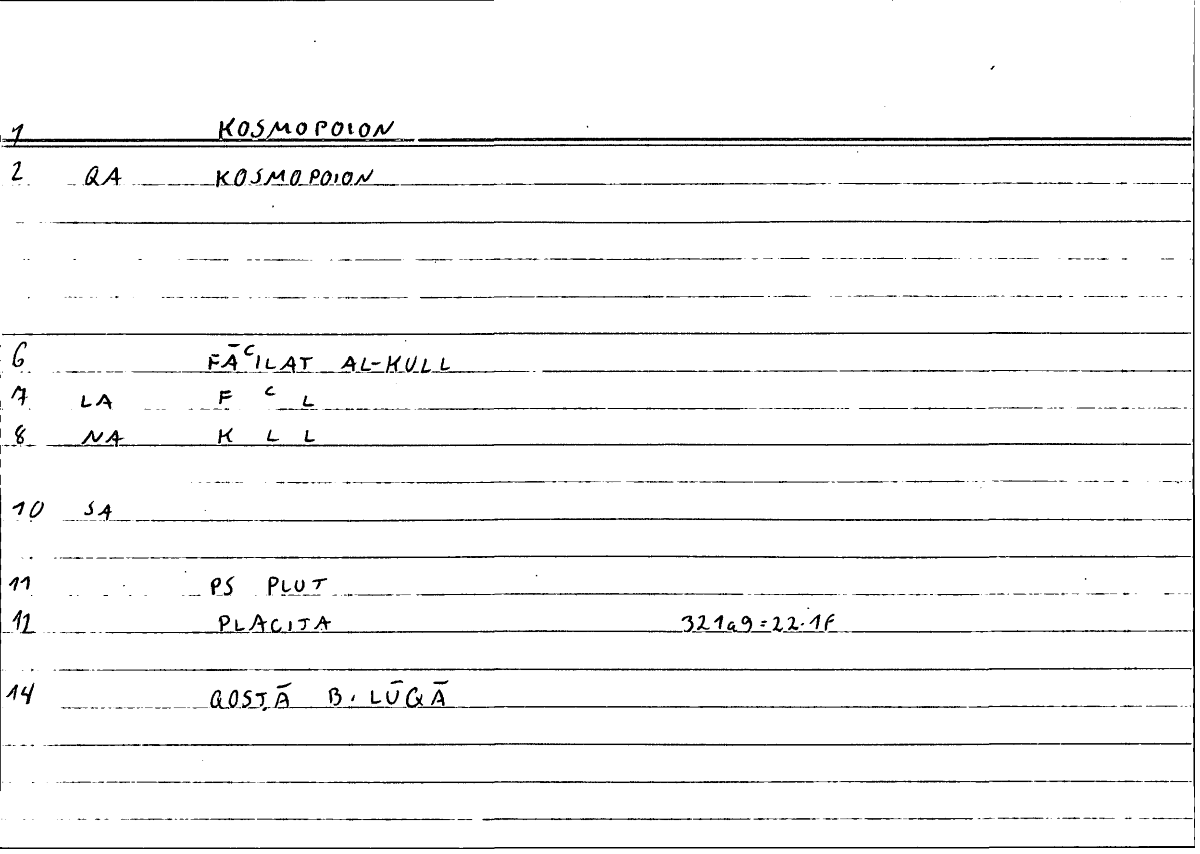 1 KOSMOPOION
2 QA KOSMOPOION
6 FĀᶜILAT AL-KULL
7 LA F ᶜ L
8 NA K L L
10 SA
11 PS PLUT
12 PLACITA 321a9=22.1f
14 QOSṬĀ B. LŪQĀ